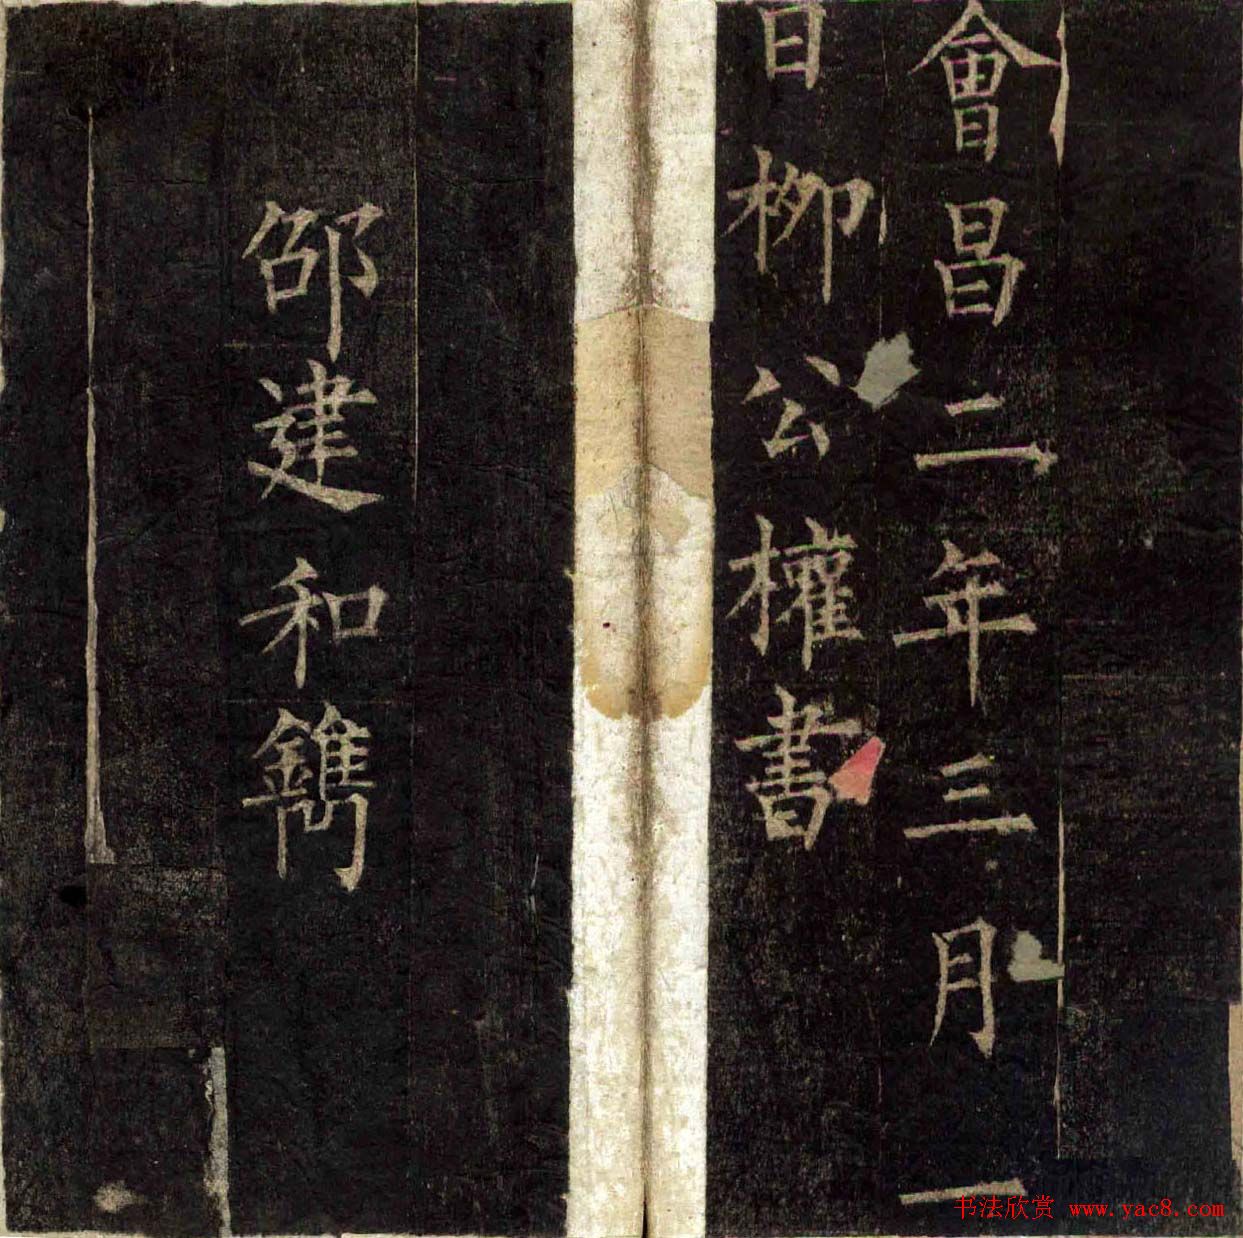 會昌二年三月一
日柳公權書
邵建和鐫
书法欣赏 www.yac8.com